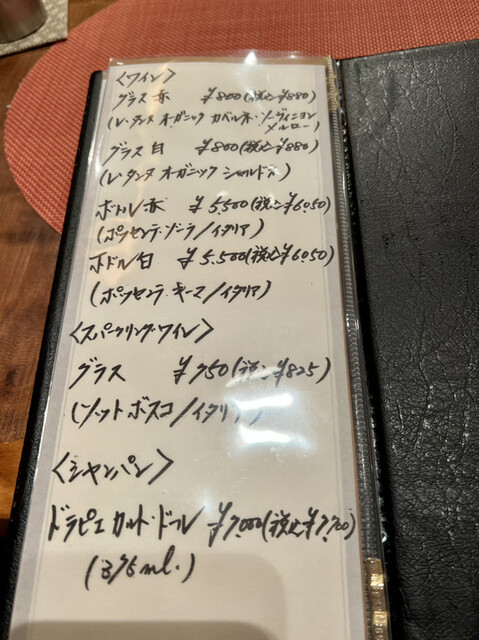 〈ワイン〉
グラス 赤 ¥800(税込¥880)
(レ・タンヌ オーガニック カベルネ・ソーヴィニヨン
メルロー)
グラス 白 ¥800(税込¥880)
(レ・タンヌ オーガニック シャルドネ)
ボトル 赤 ¥5,500(税込¥6050)
(ポッセンテ・
/イタリア)
ボトル 白 ¥5,500(税込¥6050)
(ポッセンテ・
/イタリア)
〈スパークリング・ワイン〉
グラス ¥750(税込¥825)
(ソットボスコ/イタリア)
〈シャンパン〉
ドラピエ カルト・ドール ¥7,000(税込¥7,700)
(375ml.)